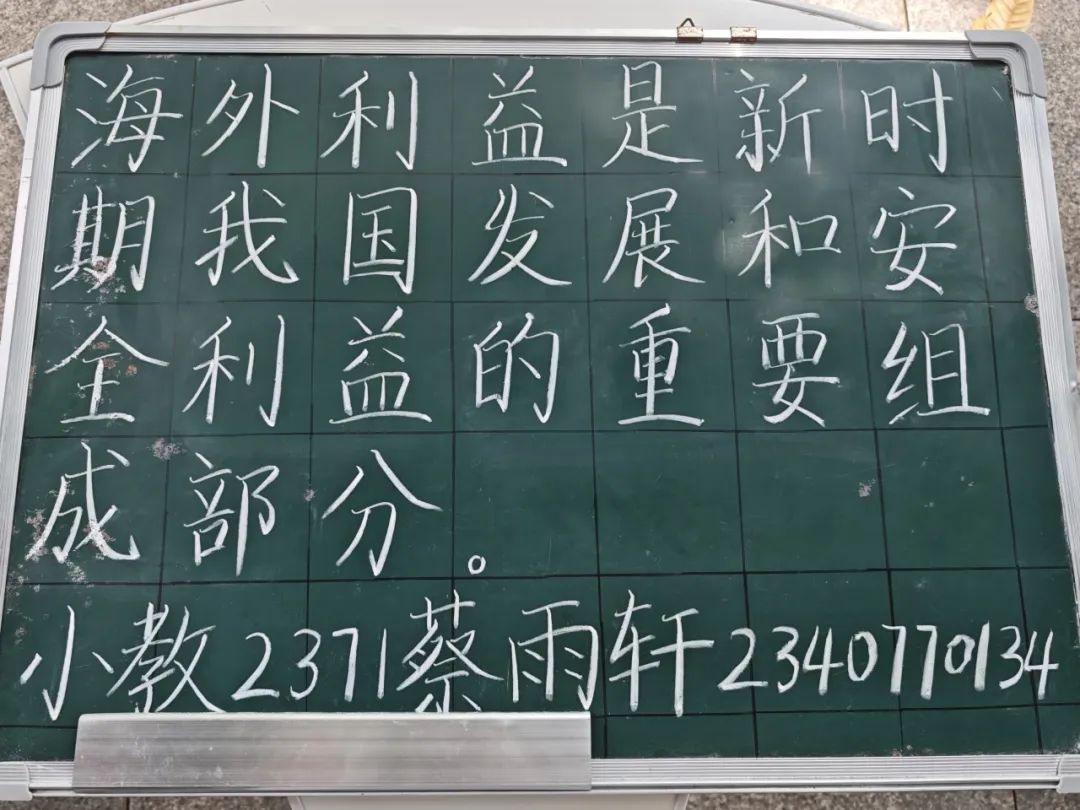 海外利益是新时
期我国发展和安
全利益的重要组
成部分。
小教2371蔡雨轩2340770134